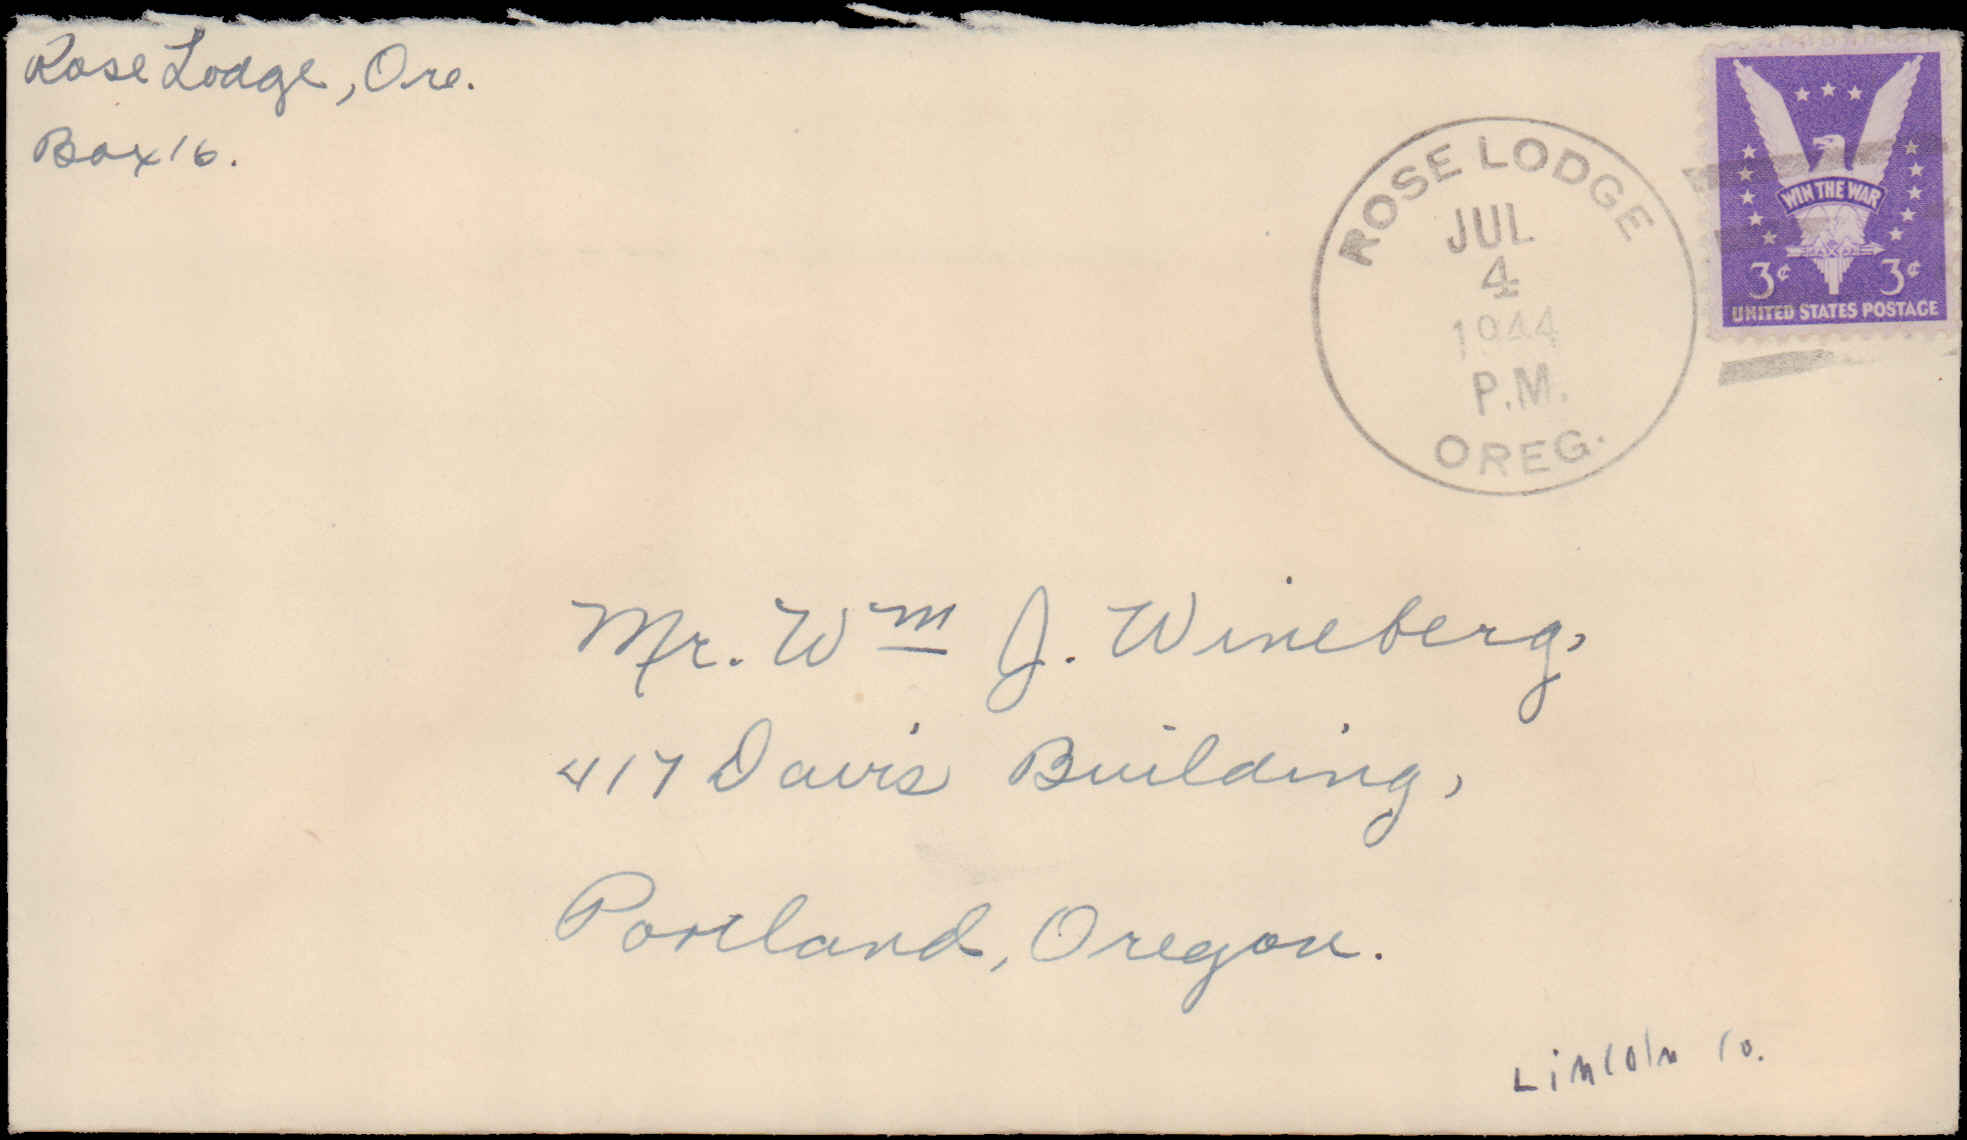 Rose Lodge, Ore.
Box 16.
ROSE LODGE
JUL
4
1944
P.M.
OREG.
WIN THE WAR
3¢ 3¢
UNITED STATES POSTAGE
Mr. Wm J. Wineberg,
417 Davis Building,
Portland, Oregon.
Lincoln Co.